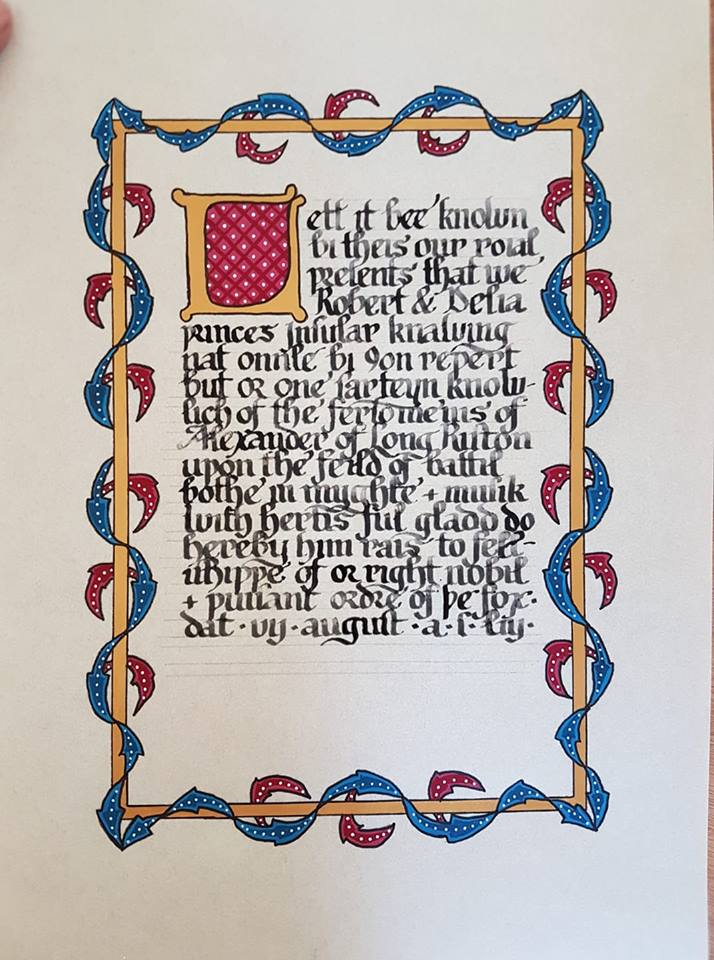 Lett it bee known
bi theis our roial
preſents that we
Robert & Delia
princes inſular knawing
nat bi repert
but or one ſarteyn know-
lich of the of
Alexander of Long Riſton
upon the feild of battil
bothe in myghte + muſik
with hertis ful gladd do
hereby him rais to fell-
iſhippe of or right nobil
+ puiſant ordre of þe fox·
dat · vij · auguſt · a · ſ · liij ·